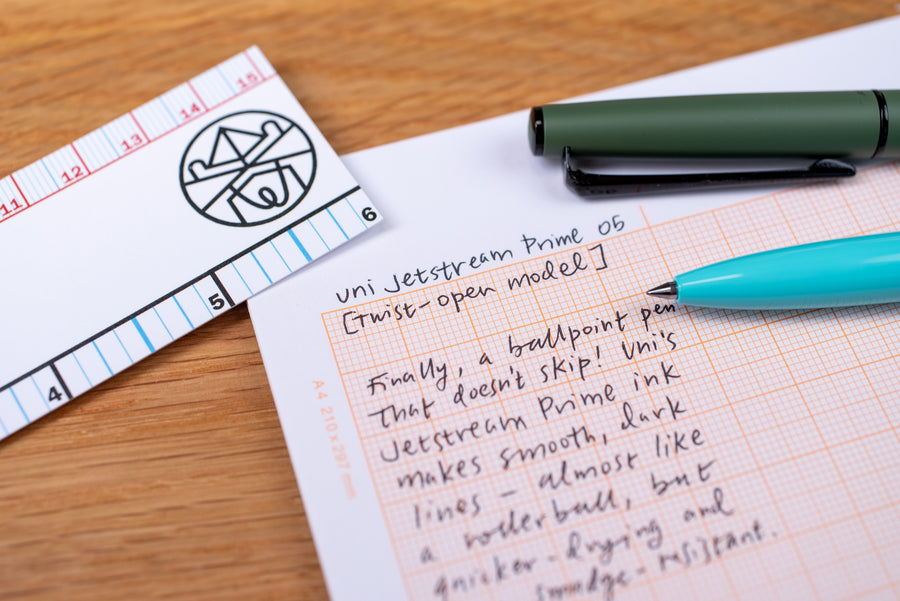 11 12 13 14 15
4 5 6
A4 210×297 mm
uni Jetstream Prime 05
[Twist-open model]
Finally, a ballpoint pen
that doesn't skip! Uni's
Jetstream Prime ink
makes smooth, dark
lines - almost like
a rollerball, but
quicker-drying and
smudge-resistant.